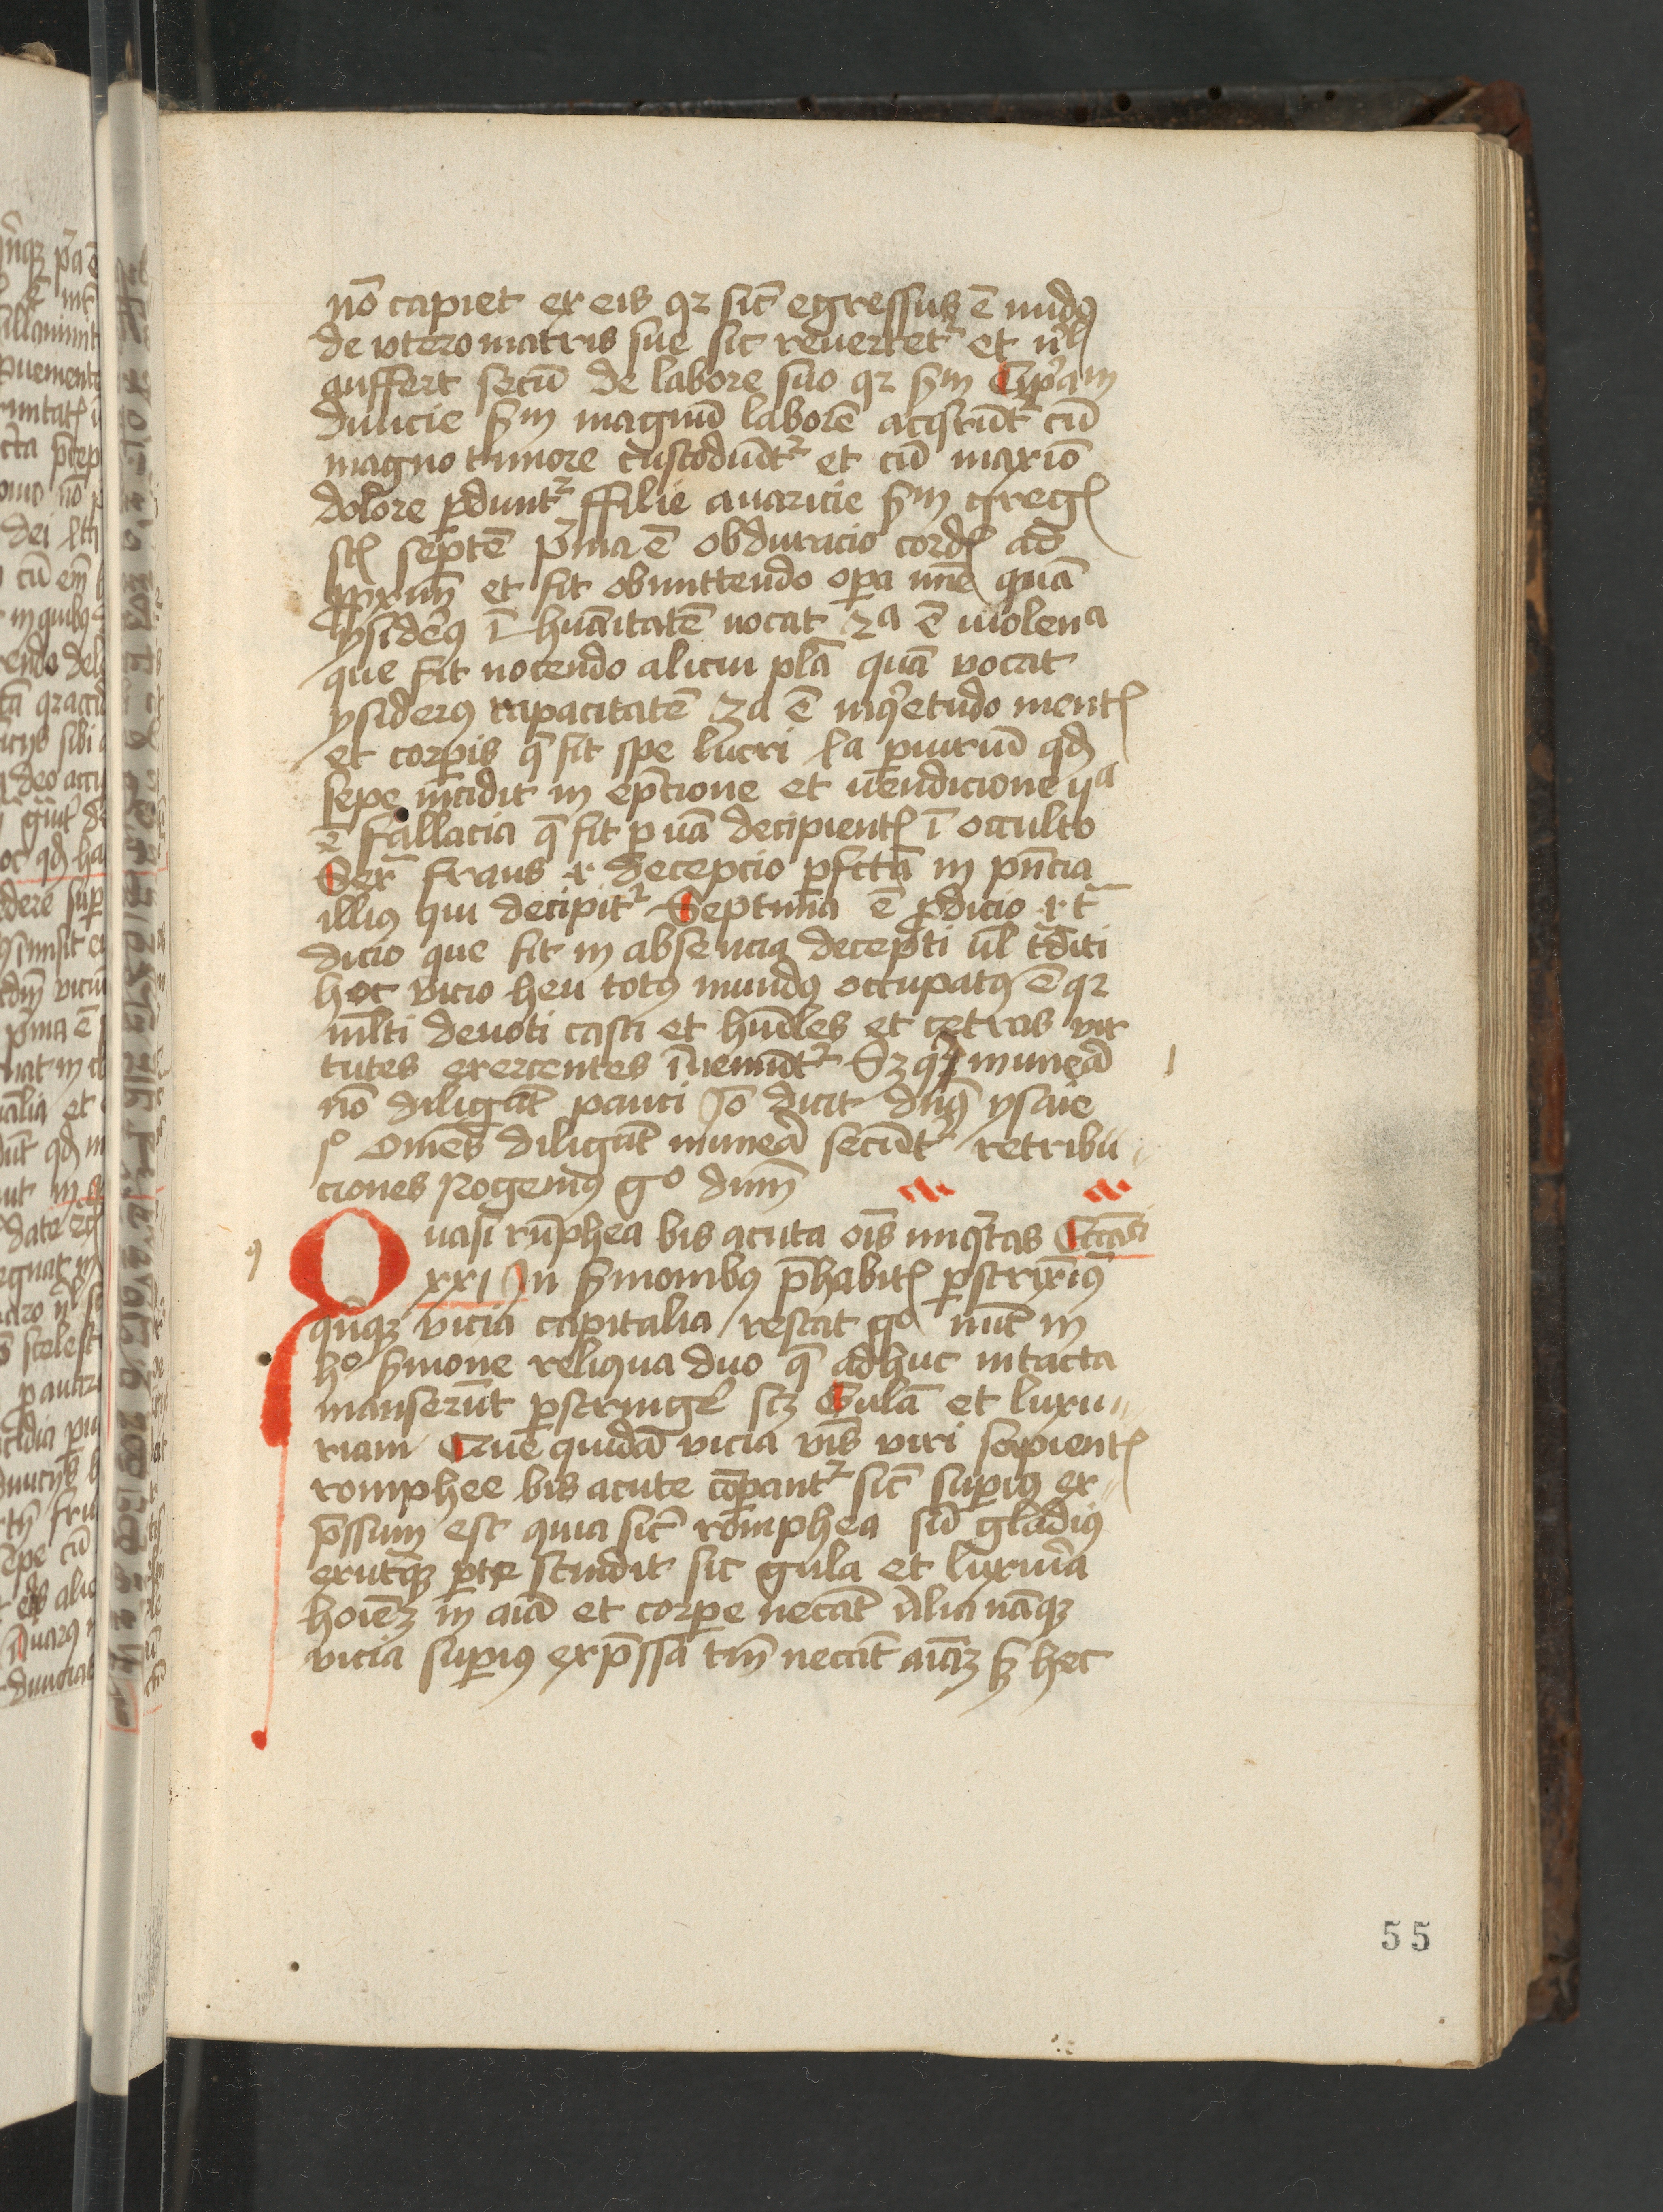 nō capiet ex eis qꝛ sic̄ egressus ē nudꝰ
de vtero matris sue sic reuertet᷑ et nꝰl
auffert secū de labore suo qꝛ ẜm Cip̄am
diuicie ẜm magnū laborē acq̄runt᷑ cū
magno timore custodiūt᷑ et cū maxīo
dolore ꝑdunt᷑ ffilie auaricie ẜm gregꝭ
sūt septē pͥma ē obduracio cordꝭ ad
ꝓximū et fit obmittendo oꝑa mīe quā
ysiderꝰ ī huānitatē uocat 2ᵃ ē uiolenᵃ
que fit nocendo alicui plā quā vocat
ysiderꝰ rapacitatē 3a ē inqͥetudo mentꝭ
et corꝑis q̄ fit spe lucri 4a ꝑiuriū qd̄
sepe īncidit in epc̄ione et uendicione vᵃ
ē fallacia q̄ fit ꝑ uiā decipientꝭ ī occulto
Sexᵃ fraus et decepcio ꝑfc̄ta in pn̄cia
illiꝰ qui decipit᷑ Septima ē ꝓdicio et tᵃ
dicio que fit in absencia decepti ul̄ tᵃditi
hoc vicio heu totꝰ mundꝰ occupatꝰ ē qꝛ
ml̄ti deuoti casti et hūiles et cetras vir
tutes exercentes īueniūt᷑ Sz qͥ munea
nō diligāt pauci Jō dicit dn̄s ysaie
pͦ Omēs diligūt munea secūt᷑ retribu
ciones Rogemꝰ gͦ dnm̄
Quasi rūphea bis acuta oīs iniqͥtas Ecc̄asti
xxi Jn ẜmonibꝰ p̄habitꝭ ꝑstrixīꝰ
qͥnqꝫ vicia capitalia restat gͦ nūc in
hͦ ẜmone reliqua duo q̄ adhuc intacta
manserūt ꝑstringeᷣ scꝫ Gulā et luxu
riam Que quidā vicia vīs viri sapientꝭ
romphee bis acute cōꝑant᷑ sic̄ suꝑiꝰ ex
p̄ssum est quia sic̄ romphea siū gladiꝰ
ex utᵃqꝫ ꝑte scindit sic gula et luxuria
hoīeꝫ in aīa et corꝑe necāt Alia nāqꝫ
vicia suꝑius exp̄ssa tm̄ necāt aīaꝫ ẜ hec
55